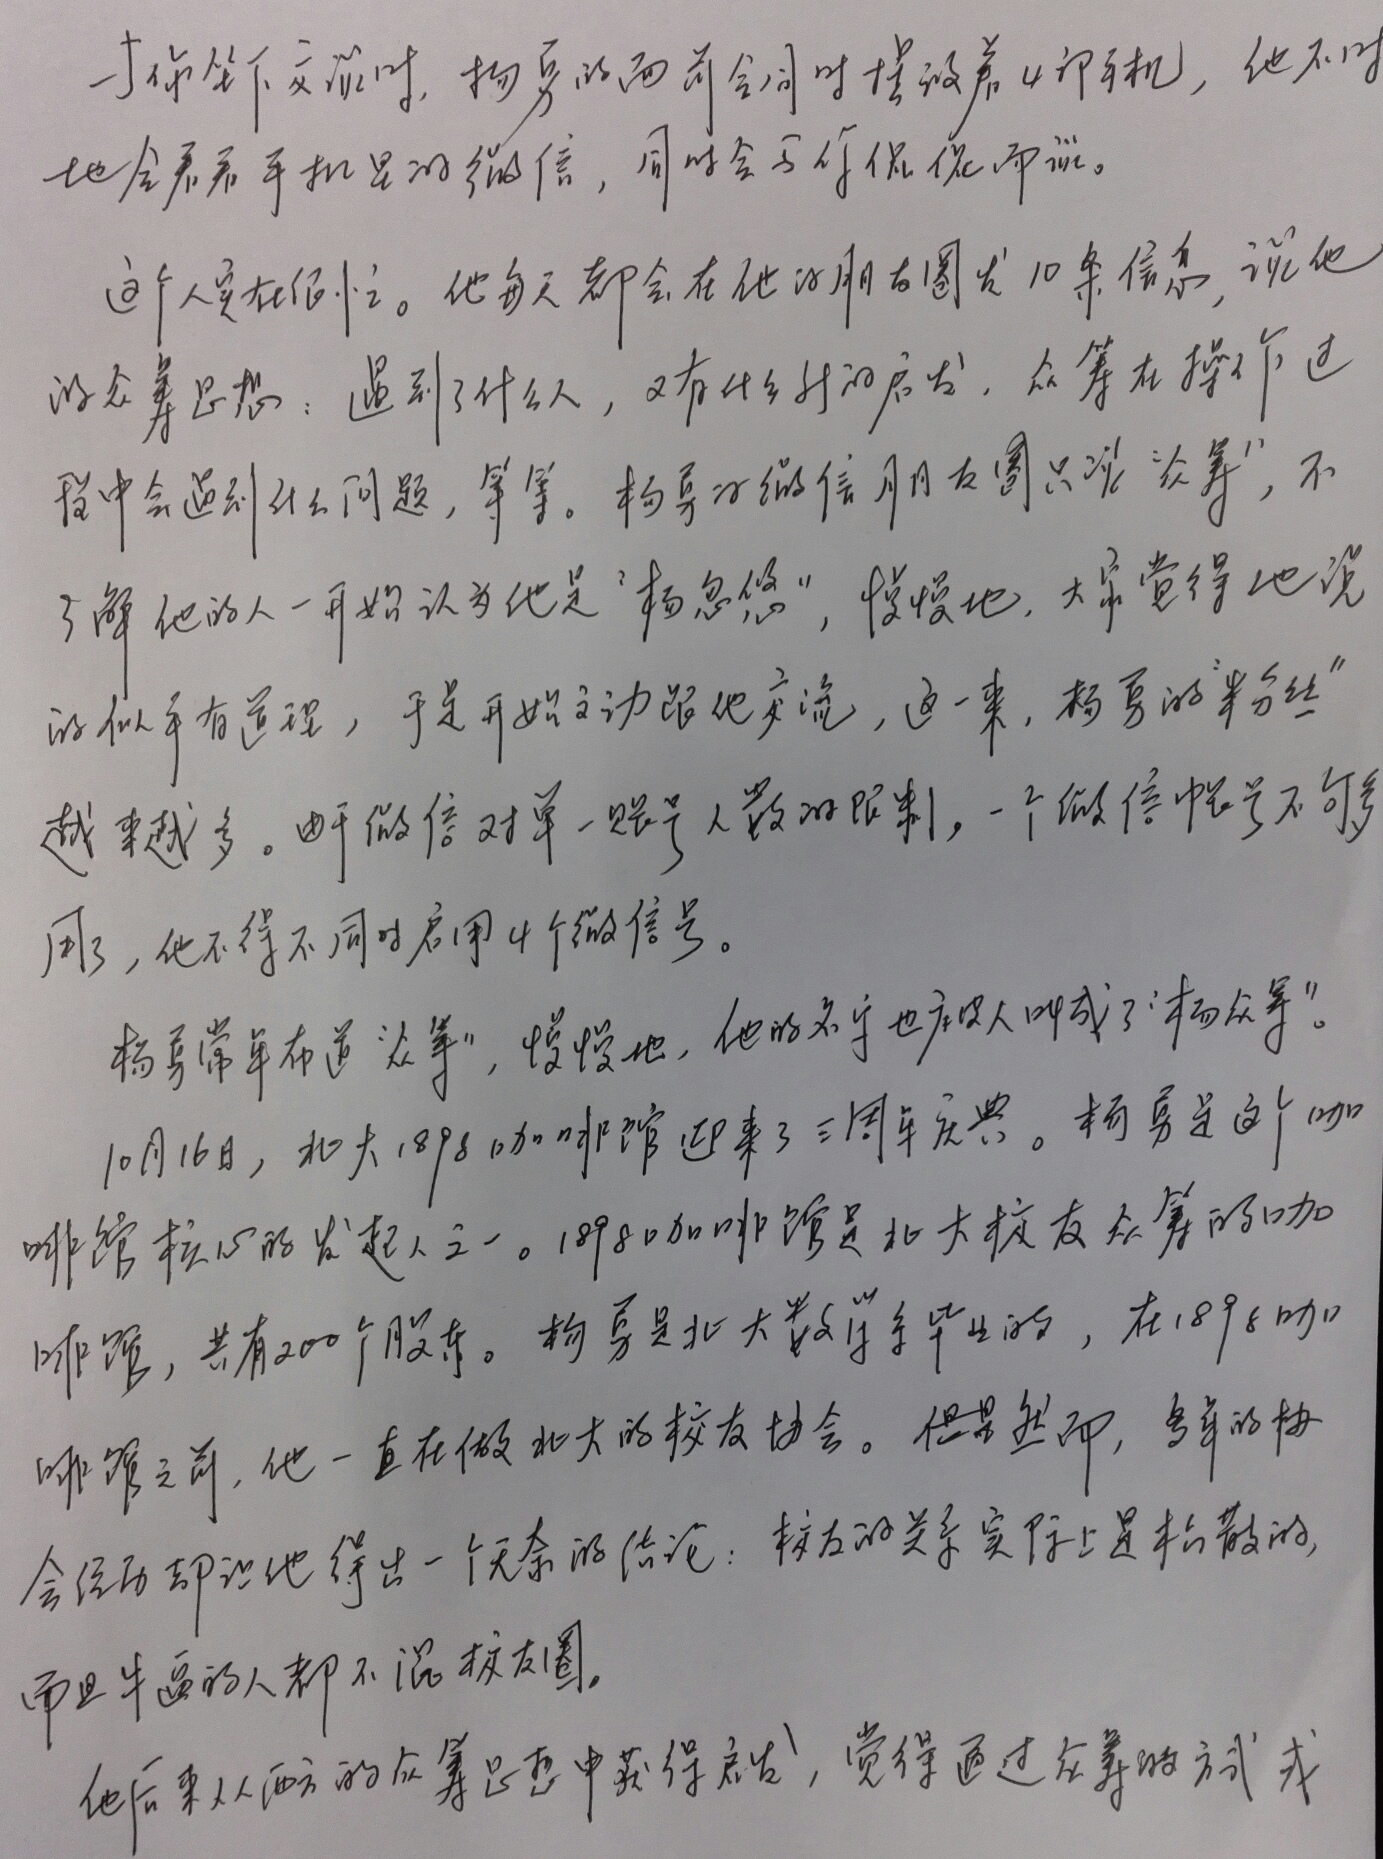 与你坐下交谈时，杨勇的面前会同时摆放着4部手机，他不时
地会看看手机里的微信，同时会与你侃侃而谈。
这个人实在很忙。他每天都会在他的朋友圈发10条信息，说他
的众筹思想：遇到了什么人，又有什么新的启发，众筹在操作过
程中会遇到什么问题，等等。杨勇的微信朋友圈只谈“众筹”，不
了解他的人一开始认为他是“杨忽悠”，慢慢地，大家觉得他说
的似乎有道理，于是开始主动跟他交流，这一来，杨勇的“粉丝”
越来越多。由于微信对单一账号人数的限制，一个微信帐号不够
用了，他不得不同时启用4个微信号。
杨勇常年布道“众筹”，慢慢地，他的名字也被人叫成了“杨众筹”。
10月16日，北大1898咖啡馆迎来了三周年庆典。杨勇是这个咖
啡馆核心的发起人之一。1898咖啡馆是北大校友众筹的咖
啡馆，共有200个股东。杨勇是北大数学系毕业的，在1898咖
啡馆之前，他一直在做北大的校友协会。然而，多年的协
会经历却让他得出一个无奈的结论：校友的关系实际上是松散的，
而且牛逼的人都不混校友圈。
他后来从西方的众筹思想中获得启发，觉得通过众筹的方式或